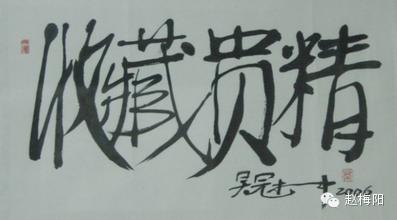 收藏贵精
吴冠中 2006
赵梅阳